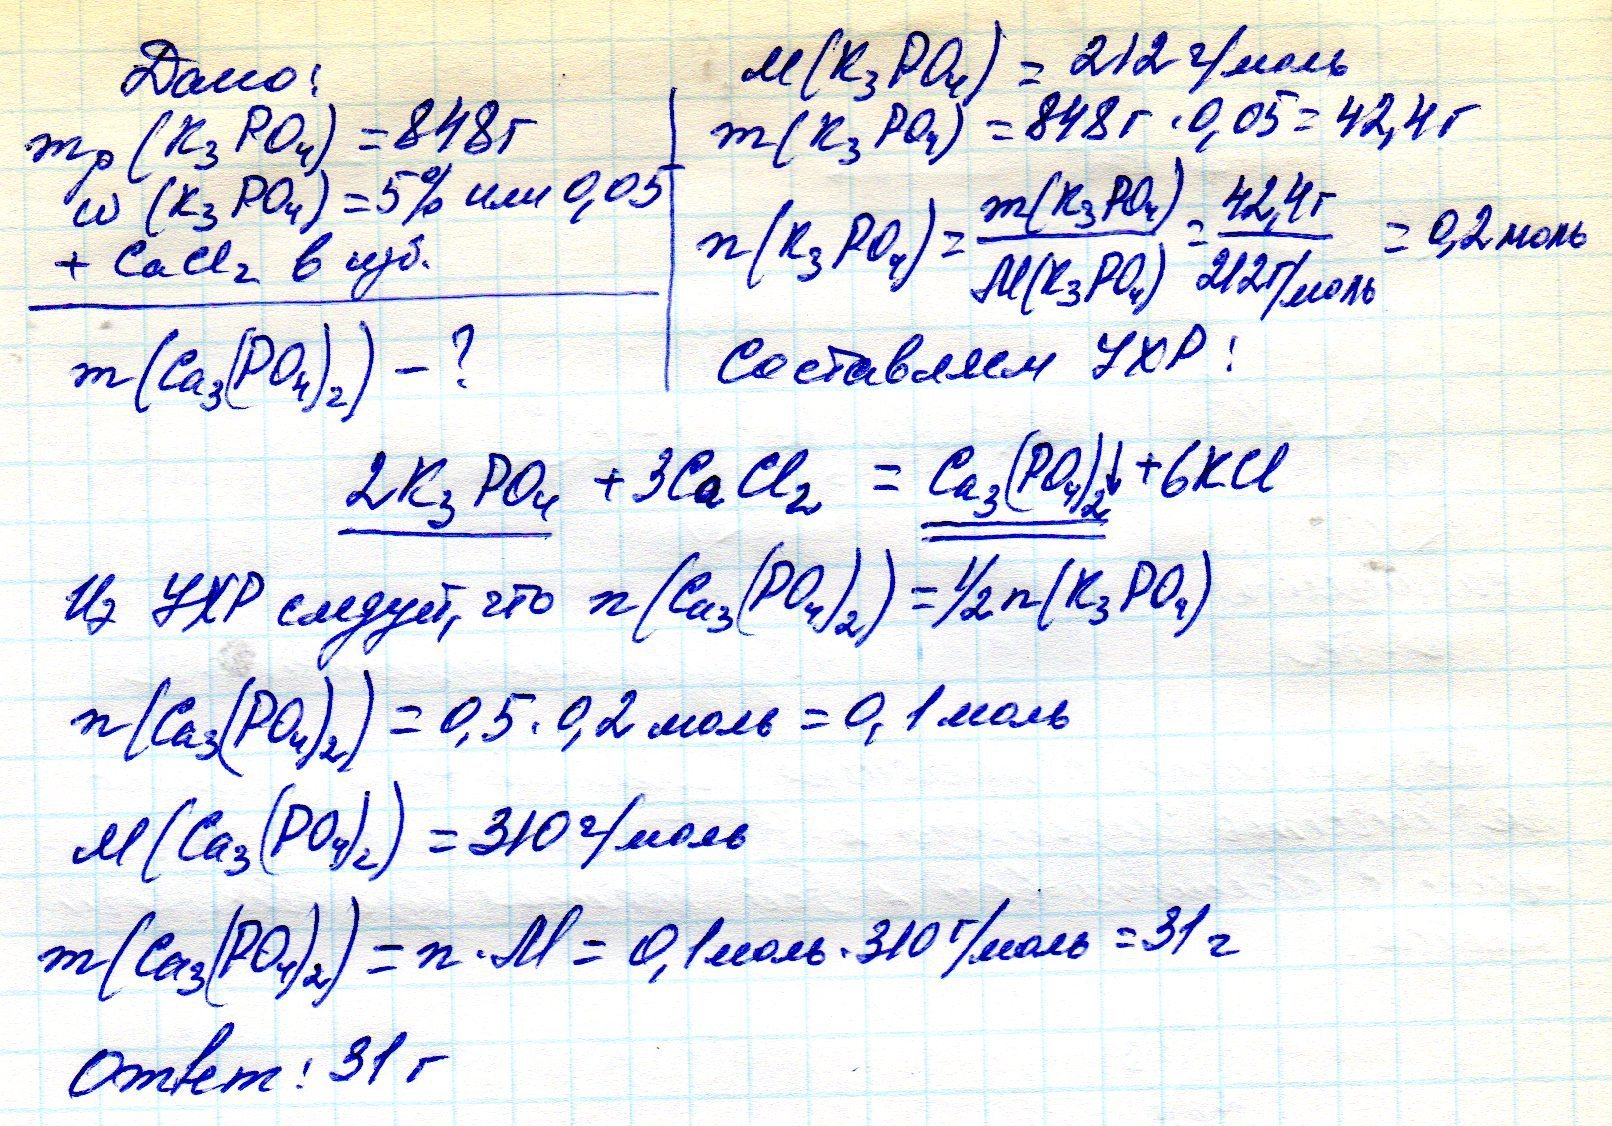 Дано:
mр(K₃PO₄) = 848г
ω(K₃PO₄) = 5% или 0,05
+ CaCl₂ в изб.
m(Ca₃(PO₄)₂) – ?
M(K₃PO₄) = 212 г/моль
m(K₃PO₄) = 848г · 0,05 = 42,4г
n(K₃PO₄) = m(K₃PO₄)/M(K₃PO₄) = 42,4г/212г/моль = 0,2 моль
Составляем УХР:
2K₃PO₄ + 3CaCl₂ = Ca₃(PO₄)₂↓ + 6KCl
Из УХР следует, что n(Ca₃(PO₄)₂) = 1/2 n(K₃PO₄)
n(Ca₃(PO₄)₂) = 0,5 · 0,2 моль = 0,1 моль
M(Ca₃(PO₄)₂) = 310 г/моль
m(Ca₃(PO₄)₂) = n · M = 0,1 моль · 310 г/моль = 31 г
Ответ: 31 г